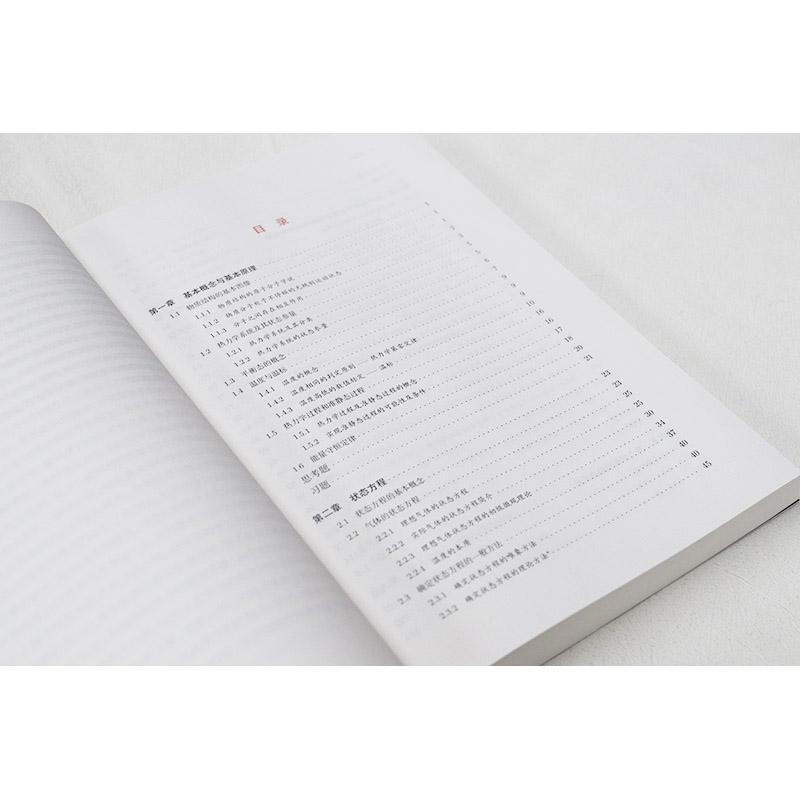 目 录
第一章 基本概念与基本原理
1.1 物质结构的基本图像
1.1.1 物质结构的原子分子学说
1.1.2 物质分子处于不停顿的无规则运动状态
1.1.3 分子之间存在相互作用
1.2 热力学系统及其状态参量
1.2.1 热力学系统及其分类
1.2.2 热力学系统的状态参量
1.3 平衡态的概念
1.4 温度与温标
1.4.1 温度的概念
1.4.2 温度相同的判定原则——热力学第零定律
1.4.3 温度高低的数值标定——温标
1.5 热力学过程和准静态过程
1.5.1 热力学过程及准静态过程的概念
1.5.2 实现准静态过程的可能性及条件
1.6 能量守恒定律
思考题 23
习题 23
第二章 状态方程 25
2.1 状态方程的基本概念 25
2.2 气体的状态方程 30
2.2.1 理想气体的状态方程 34
2.2.2 实际气体的状态方程简介 37
2.2.3 理想气体的状态方程的初级微观理论 40
2.2.4 温度的本质 40
2.3 确定状态方程的一般方法 45
2.3.1 确定状态方程的唯象方法
2.3.2 确定状态方程的理论方法*